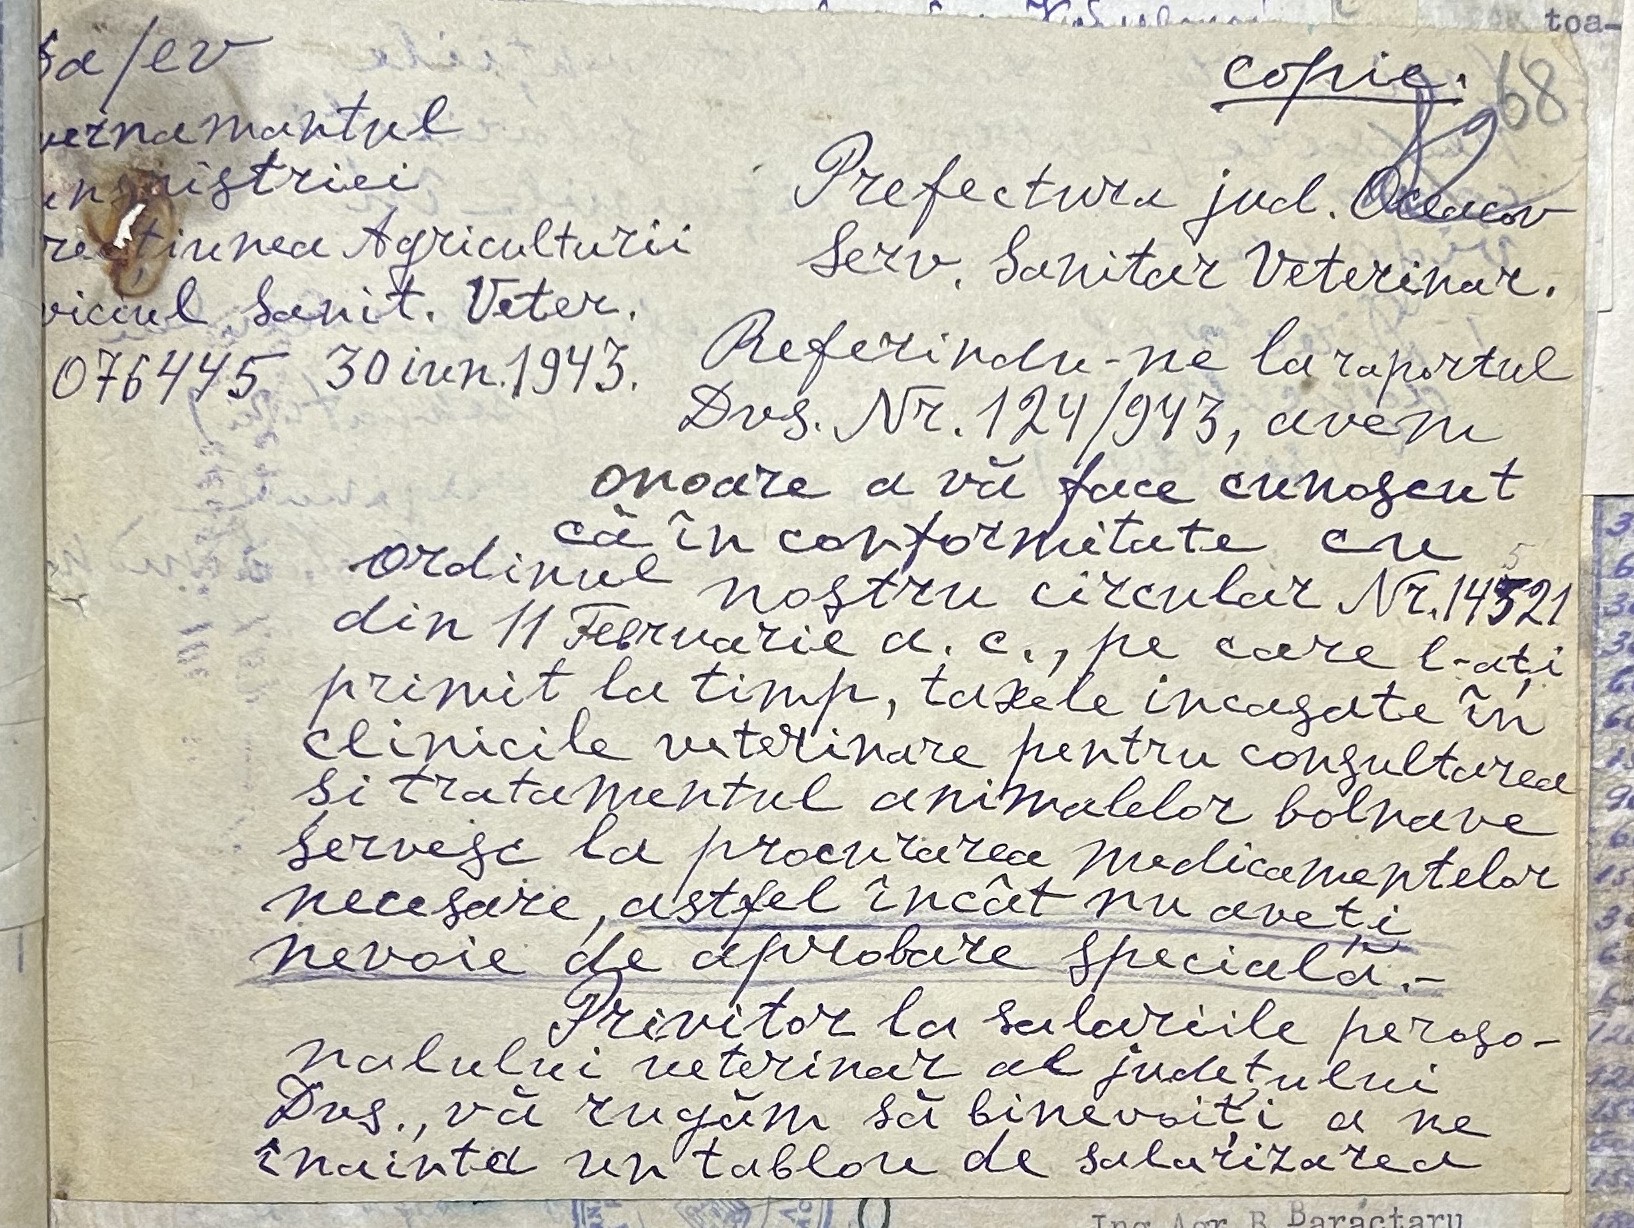 toa-
copie.
68
/ev
vernamantul
nsnistriei
recțiunea Agriculturii
viciul Sanit. Veter.
076445 30 iun. 1943.
Prefectura jud. Oceacov
Serv. Sanitar Veterinar.
Referindu-ne la raportul
Dvs. Nr. 124/943, avem
onoare a vă face cunoscut
că în conformitate cu
ordinul nostru circular Nr. 14521
5
din 11 Februarie a. c., pe care l-ați
primit la timp, taxele incasate în
clinicile veterinare pentru consultarea
și tratamentul animalelor bolnave
servesc la procurarea medicamentelor
necesare, astfel încât nu aveți
nevoie de aprobare specială.-
Privitor la salariile perso-
nalului veterinar al județului
Dvs., vă rugăm să binevoiți a ne
înainta un tablou de salarizarea
Ing. Agr. B. Baractaru